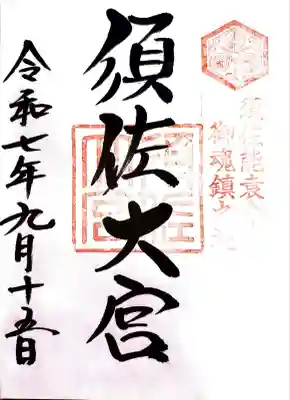 須佐能袁
御魂鎮
須佐大宮
令和七年九月十五日